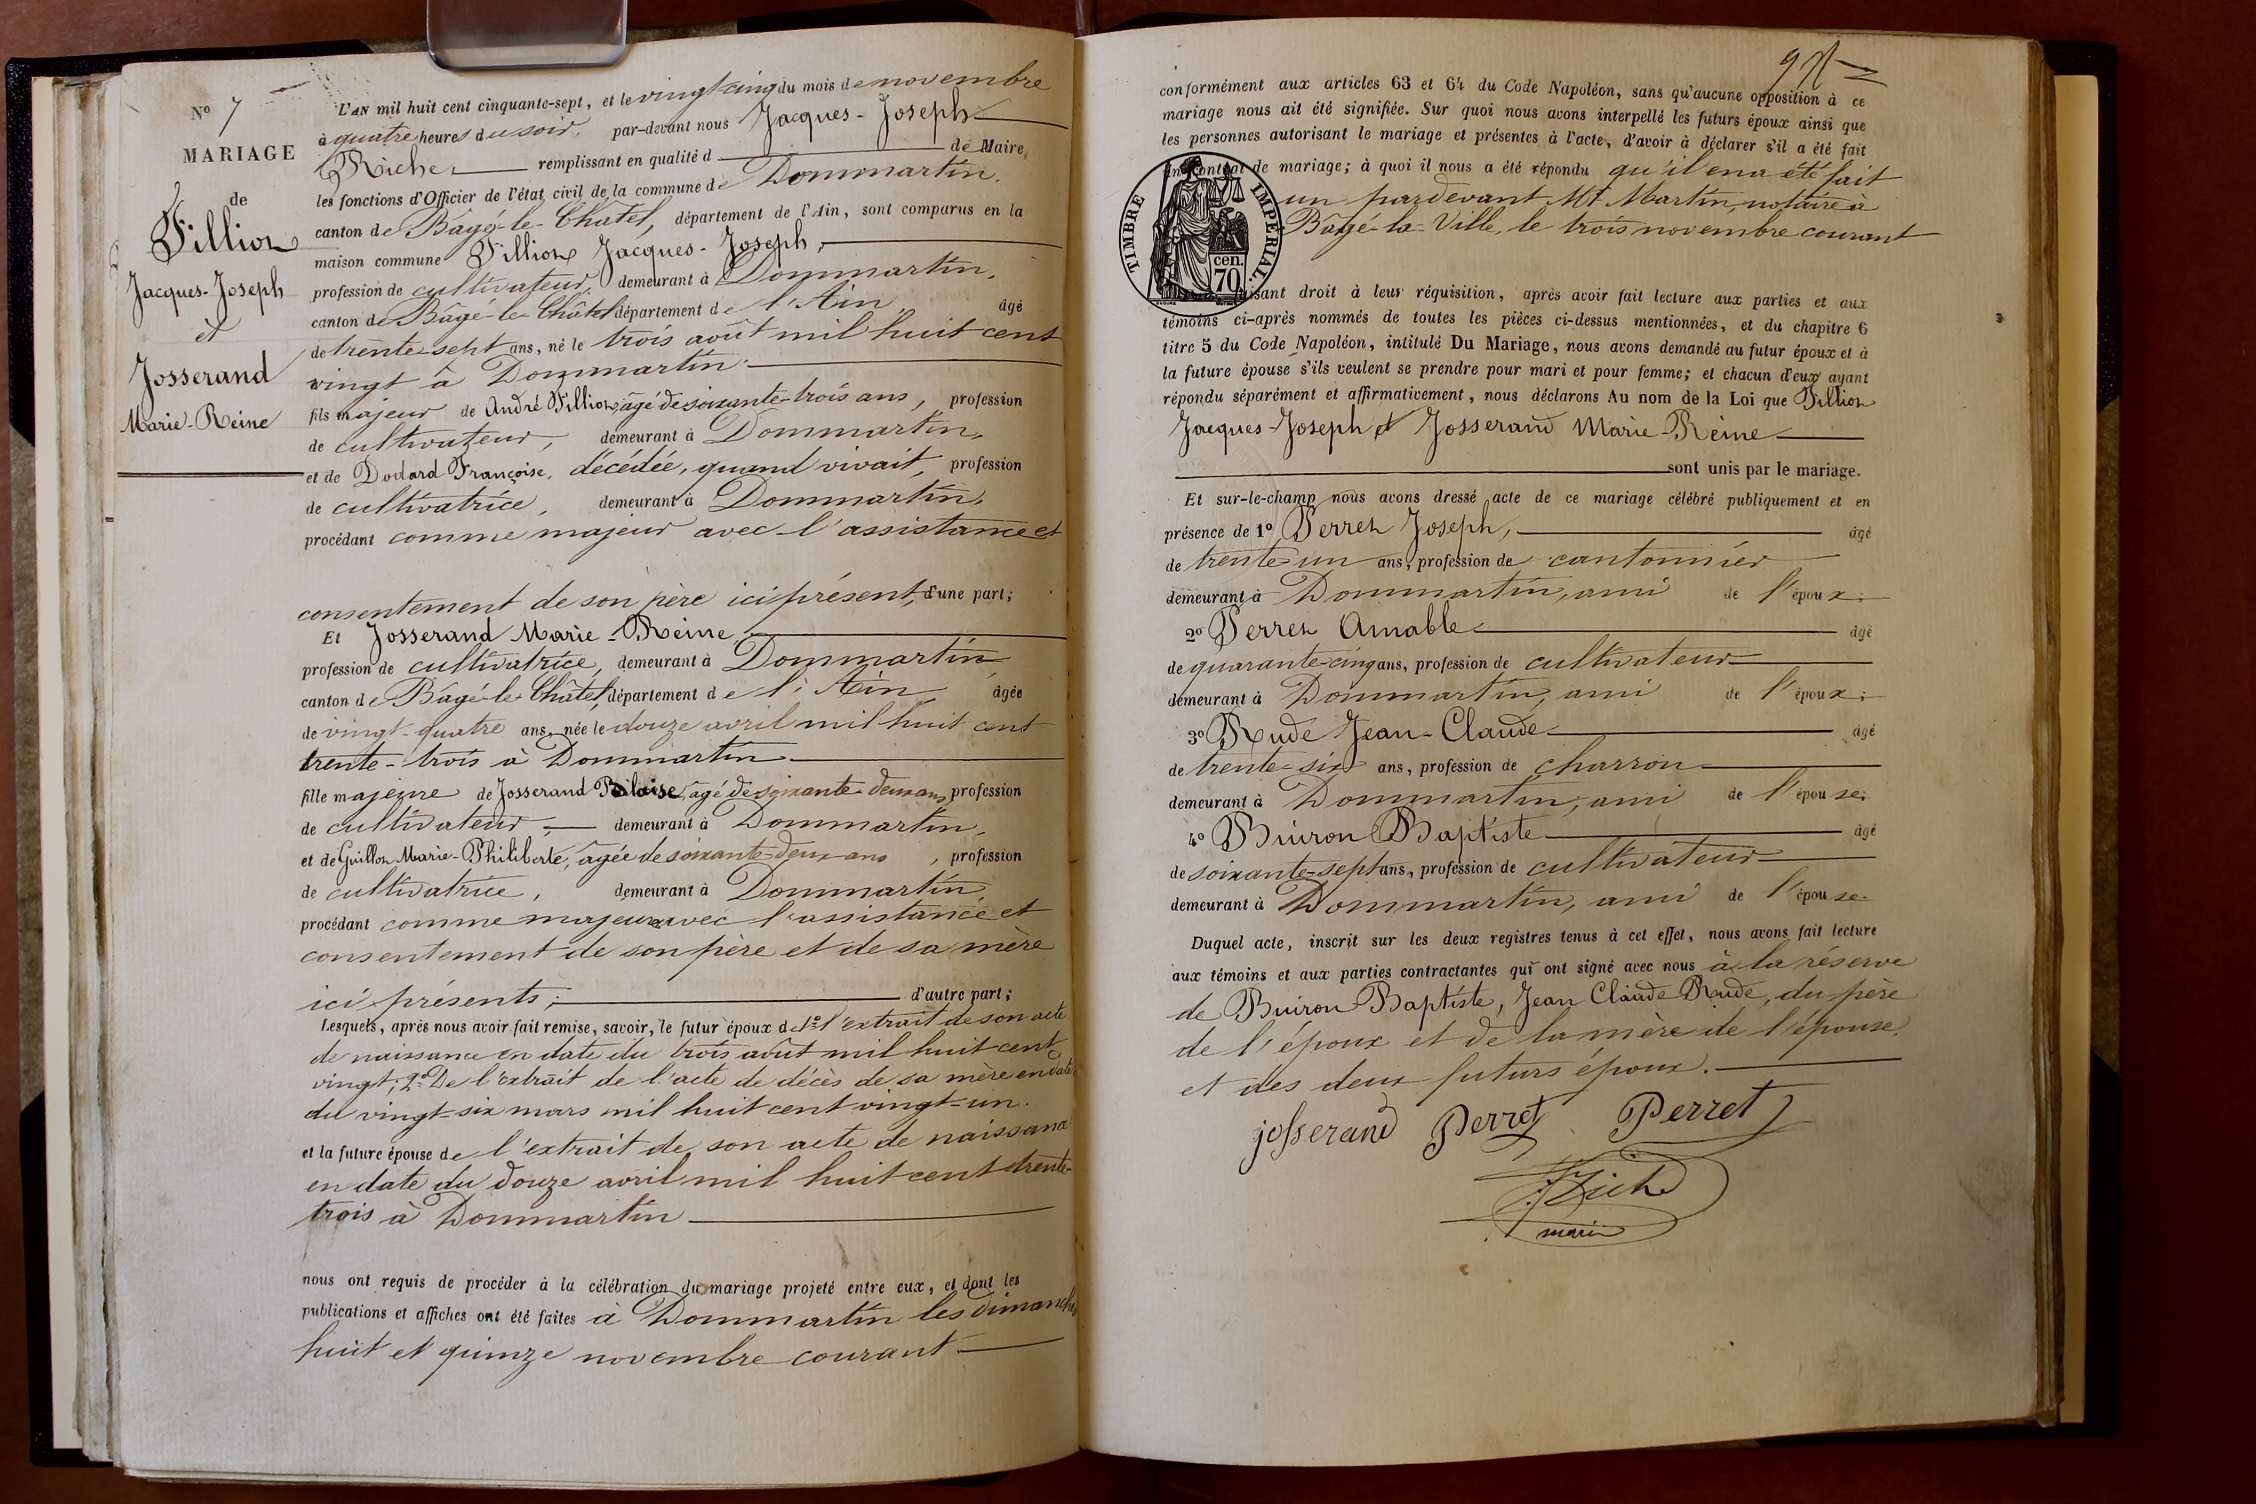 N° 7
MARIAGE
de
Fillion
Jacques-Joseph
et
Josserand
Marie-Reine
L'AN mil huit cent cinquante-sept, et le vingt cinq du mois de novembre
à quatre heures du soir, par-devant nous Jacques-Joseph
Riche remplissant en qualité d de Maire,
les fonctions d'Officier de l'état civil de la commune de Dommartin,
canton de Bâgé-le-Châtel, département de l'Ain, sont comparus en la
maison commune Fillion Jacques-Joseph,
profession de cultivateur, demeurant à Dommartin,
canton de Bâgé-le-Châtel département de l'Ain âgé
de trente-sept ans, né le trois août mil huit cent
vingt à Dommartin
fils majeur de André Fillion, âgé de soixante-trois ans, profession
de cultivateur, demeurant à Dommartin,
et de Dodard Françoise, décédée, quand vivait, profession
de cultivatrice, demeurant à Dommartin,
procédant comme majeur avec l'assistance et
consentement de son père ici présent, d'une part;
Et Josserand Marie-Reine
profession de cultivatrice, demeurant à Dommartin
canton de Bâgé-le-Châtel, département de l'Ain âgée
de vingt-quatre ans, née le douze avril mil huit cent
trente-trois à Dommartin
fille majeure de Josserand Blaise, âgé de soixante-deux ans, profession
de cultivateur, demeurant à Dommartin,
et de Guillon Marie-Philiberte, âgée de soixante-deux ans, profession
de cultivatrice, demeurant à Dommartin
procédant comme majeure avec l'assistance et
consentement de son père et de sa mère
ici présents; d'autre part;
Lesquels, après nous avoir fait remise, savoir, le futur époux de 1° l'extrait de son acte
de naissance en date du trois août mil huit cent
vingt; 2° De l'extrait de l'acte de décès de sa mère en date
du vingt-six mars mil huit cent vingt-un.
et la future épouse de l'extrait de son acte de naissance
en date du douze avril mil huit cent trente-
trois à Dommartin
nous ont requis de procéder à la célébration du mariage projeté entre eux, et dont les
publications et affiches ont été faites à Dommartin les dimanches
huit et quinze novembre courant
conformément aux articles 63 et 64 du Code Napoléon, sans qu'aucune opposition à ce
mariage nous ait été signifiée. Sur quoi nous avons interpellé les futurs époux ainsi que
les personnes autorisant le mariage et présentes à l'acte, d'avoir à déclarer s'il a été fait
un contrat de mariage; à quoi il nous a été répondu qu'il en a été fait
un pardevant Mt Martin, notaire à
Bâgé-la-Ville, le trois novembre courant
TIMBRE IMPÉRIAL.
cen.
70
faisant droit à leur réquisition, après avoir fait lecture aux parties et aux
témoins ci-après nommés de toutes les pièces ci-dessus mentionnées, et du chapitre 6
titre 5 du Code Napoléon, intitulé Du Mariage, nous avons demandé au futur époux et à
la future épouse s'ils veulent se prendre pour mari et pour femme; et chacun d'eux ayant
répondu séparément et affirmativement, nous déclarons Au nom de la Loi que Fillion
Jacques-Joseph et Josserand Marie-Reine
sont unis par le mariage.
Et sur-le-champ nous avons dressé acte de ce mariage célébré publiquement et en
présence de 1° Perret Joseph, âgé
de trente-un ans, profession de cantonnier
demeurant à Dommartin, ami de l'époux;
2° Perret Amable âgé
de quarante-cinq ans, profession de cultivateur
demeurant à Dommartin, ami de l'époux;
3° Rude Jean-Claude âgé
de trente-six ans, profession de charron
demeurant à Dommartin, ami de l'épouse;
4° Buiron Baptiste âgé
de soixante-sept ans, profession de cultivateur
demeurant à Dommartin, ami de l'épouse.
Duquel acte, inscrit sur les deux registres tenus à cet effet, nous avons fait lecture
aux témoins et aux parties contractantes qui ont signé avec nous à la réserve
de Buiron Baptiste, Jean Claude Rude, du père
de l'époux et de la mère de l'épouse,
et des deux futurs époux.
josserand Perret Perret
Riche
maire